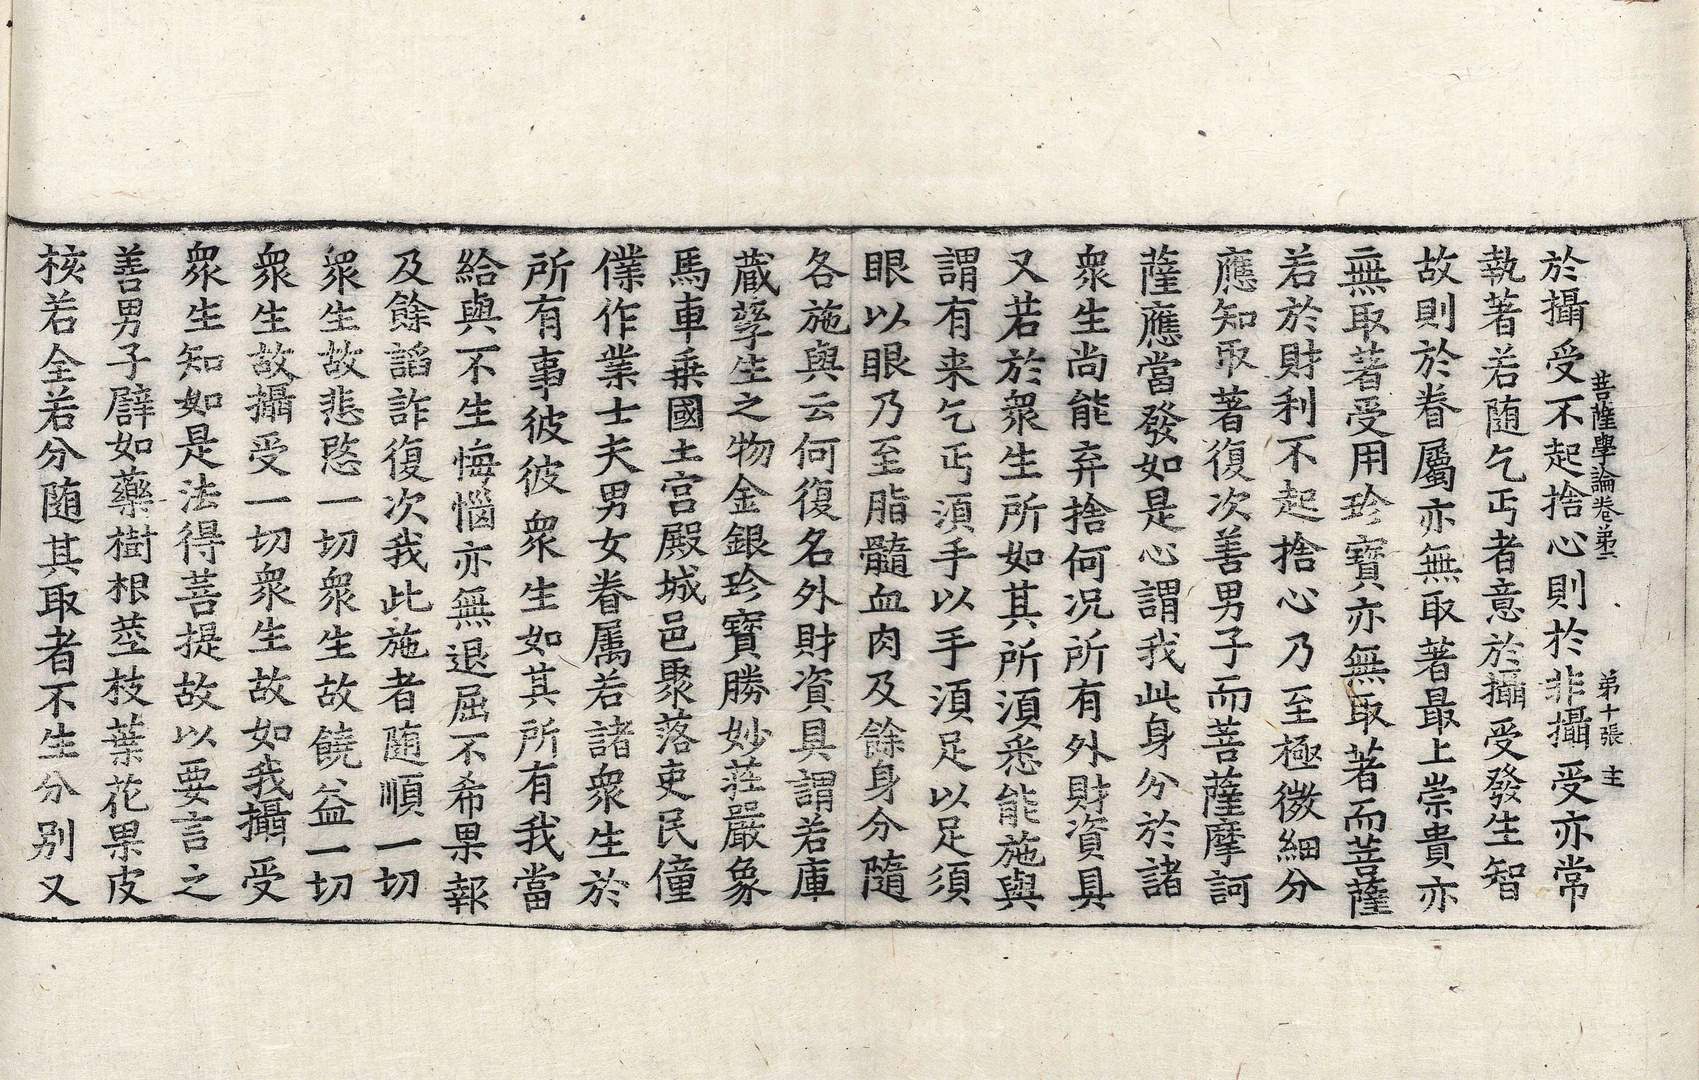 於攝受不起捨心則於非攝受亦常
菩薩學論卷第二 第十張 主
執著若随乞丐者意於攝受發生智
故則於眷屬亦無取著最上崇貴亦
無取著受用珍寶亦無取著而菩薩
若於財利不起捨心乃至極微細分
應知取著復次善男子而菩薩摩訶
薩應當發如是心謂我此身分於諸
衆生尚能弃捨何况所有外財資具
又若於衆生所如其所須悉能施與
謂有来乞丐須手以手須足以足須
眼以眼乃至脂髓血肉及餘身分隨
各施與云何復名外財資具謂若庫
藏孳生之物金銀珍寶勝妙莊嚴象
馬車乗國土宫殿城邑聚落吏民僮
僕作業士夫男女眷属若諸衆生於
所有事彼彼衆生如其所有我當
給與不生悔惱亦無退屈不希果報
及餘謟詐復次我此施者随順一切
衆生故悲愍一切衆生故饒益一切
衆生故攝受一切衆生故如我攝受
衆生知如是法得菩提故以要言之
善男子譬如藥樹根莖枝葉花果皮
核若全若分随其取者不生分别又